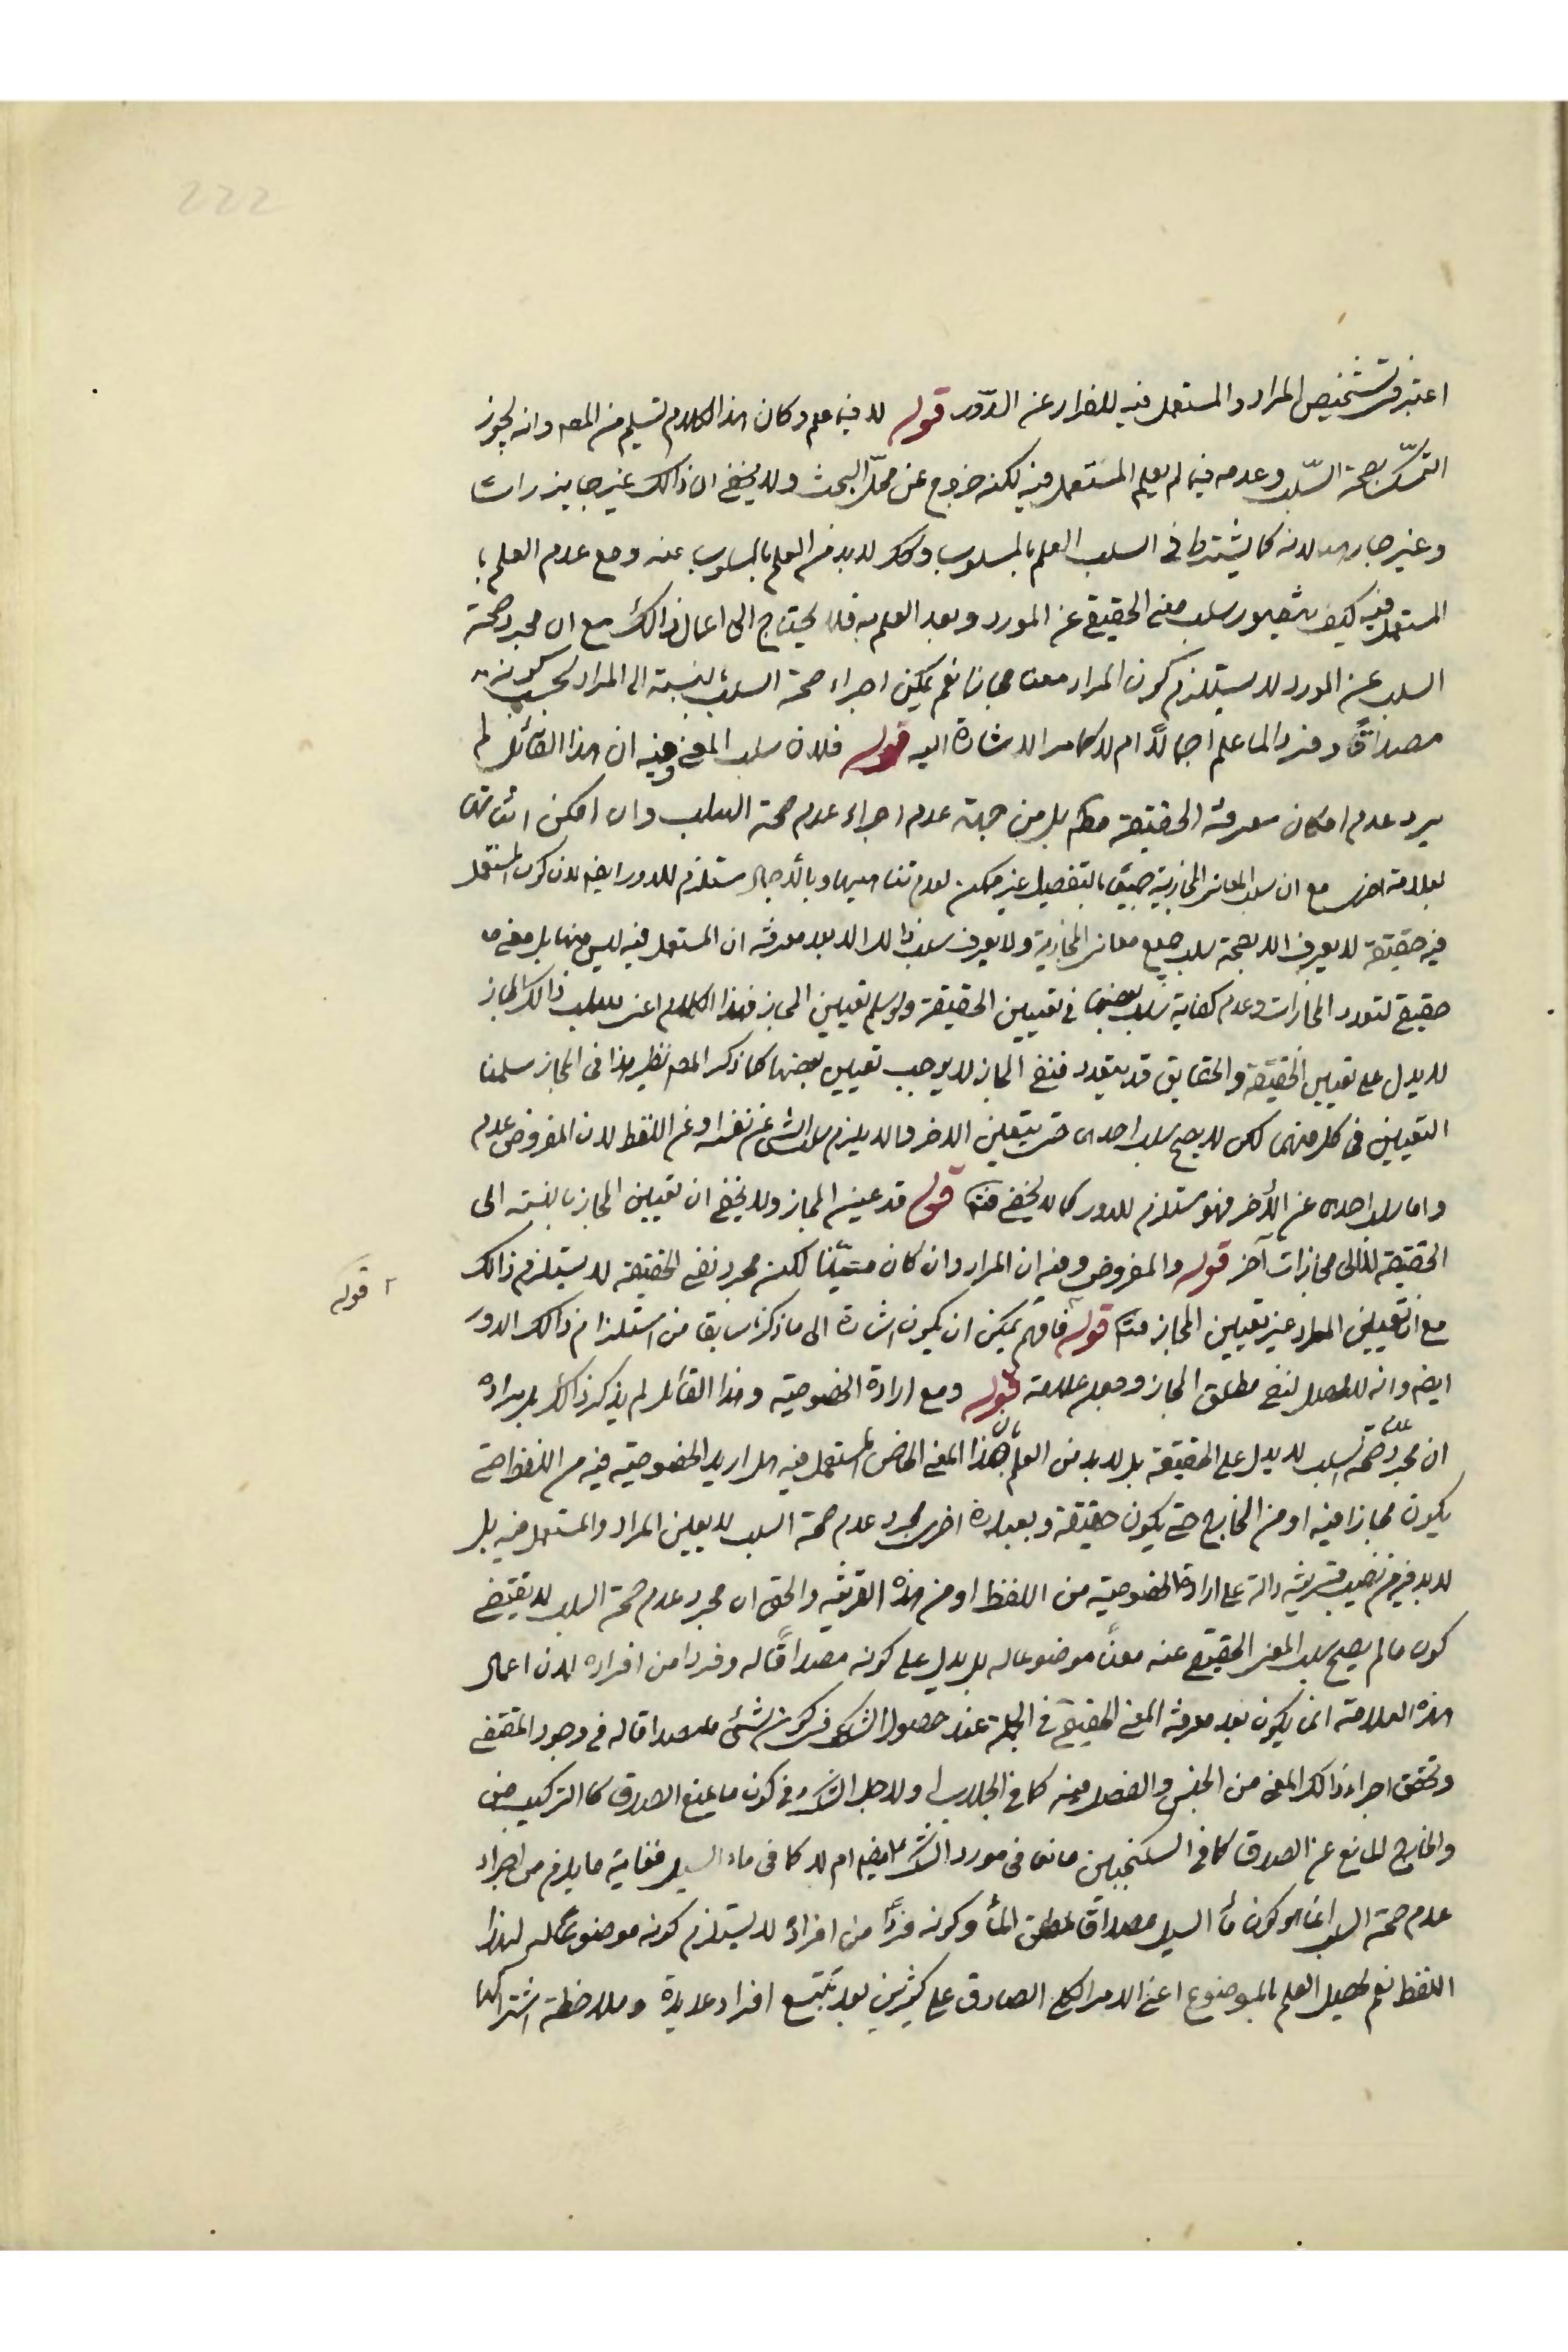 222
اعتبر فى تشخيص المراد والمستعمل فيه للفرار عن الدّور قوله لا فيما علم وكان هذا الكلام تسليم من المصـ وانه يجوز
التمسّك بصحة السّلب وعدمه فيما لم يعلم المستعمل فيه لكنه خروج عن محلّ البحث ولا يخفى ان ذالك غير جايز راسًا
وغير جار لانه كما يشترط فى السلب العلم بالمسلوب وكك لابد من العلم بالمسلوب عنه ومع عدم العلم با
المستعمل فيه كيف يتصور سلب معنى الحقيقى عن المورد وبعد العلم به فلا يحتاج الى اعمال ذالك مع ان مجرد صحة
السلب عن المورد لا يستلزم كون المراد معنا مجازيا نعم يمكن اجراء صحة السلب بالنسبة الى المراد بحسب كونه
مصداقًا وفردا لما علم اجمالًا ام لا كما مر الاشارة اليه قوله فلان سلب المعنى وفيه ان هذا القائل لم
يرد عدم امكان معرفة الحقيقة مطم بل من جهة عدم اجراء عدم صحة السلب وان امكن اثباتها
بعلامة اخرى مع ان سلب المعانى المجازية جميعًا بالتفصيل غير ممكن لعدم تناهيها وبالاجمال مستلزم للدور ايضـ لان كون المستعمل
فيه حقيقة لا يعرف الا بصحة سلب جميع معانى المجازية ولا يعرف سلب ذالك الا بعد معرفة ان المستعمل فيه ليس منها بل معنى
حقيقى لتعدد المجازات وعدم كفاية سلب بعضها فى تعيين الحقيقة ولو سلم تعيين المجاز فهذا الكلام اعنى سلب ذالك المجاز
لا يدل على تعيين الحقيقة والحقايق قد يتعدد فنفى المجاز لا يوجب تعيين بعضها كما ذكر المصـ نظير هذا فى المجاز سلمنا
التعيين فى كل منهما لكن لا يصح سلب احدى حتى يتعين الاخر والا يلزم سلب الشئ عن نفسه او عن اللفظ لان المفروض عدم
واما سلب احدى عن الأخر فهو مستلزم للدور كما لا يخفى منه قوله قد عين المجاز ولا يخفى ان تعيين المجاز بالنسبة الى
الحقيقة لا الى مجازات آخر قوله والمفروض وفيه ان المراد وان كان متعيّنا لكن مجرد نفى الحقيقة لا يستلزم ذالك
مع ان تعيين المراد غير تعيين المجاز منه قوله فافهم يمكن ان يكون اشارة الى ما ذكرنا سابقا من استلزام ذالك الدور
قوله
ايضـ وانه لا يحصل لنفى مطلق المجاز وجعله علامة قوله ومع ارادة الخصوصية وهذا القائل لم يذكر ذالك بل مراده
ان مجرد عدم صحة السلب لا يدل على الحقيقة بل لابد من العلم بان هذا المعنى الخاص المستعمل فيه هل اريد الخصوصية فيه من اللفظ حتى
يكون مجازا فيه او من الخارج حتى يكون حقيقة وبعبارة اخرى مجرد عدم صحة السلب لا يعين المراد والمستعمل فيه بل
لابد فيه من نصب قرينة دالة على ارادة الخصوصية من اللفظ او من هذه القرينه والحق ان مجرد عدم صحة السلب لا يقتضى
كون مالم يصح سلب المعنى الحقيقى عنه معنًا موضوعا له بل يدل على كونه مصداقًا له وفردا من افراده لان اعمال
هذه العلامة انما يكون بعد معرفة المعنى الحقيقى فى الجملة عند حصول الشك فى كون شئ مصداقا له فى وجود المقتضى
وتحقق اجزاء ذالك المعنى من الجنس والفصل فيه كما فى الجلاب او لاجل الشك فى كون ما يمنع الصدق كالتركيب
والخارج المانع عن الصدق كما فى السكنجبين مانعا فى مورد الشك ايضـ ام لا كما فى ماء السيل فغاية ما يلزم من اجراء
عدم صحة السلب انما هو كون مأ السيل مصداقًا لمطلق المأ وكونه فردًا من افراده لا يستلزم كونه موضوعًا له لهذا
اللفظ نعم يحصل العلم بالموضوع اعنى الامر الكلى الصادق على كثيرين بعد تتبع افراد عديدة وملاحظة اشتراكها